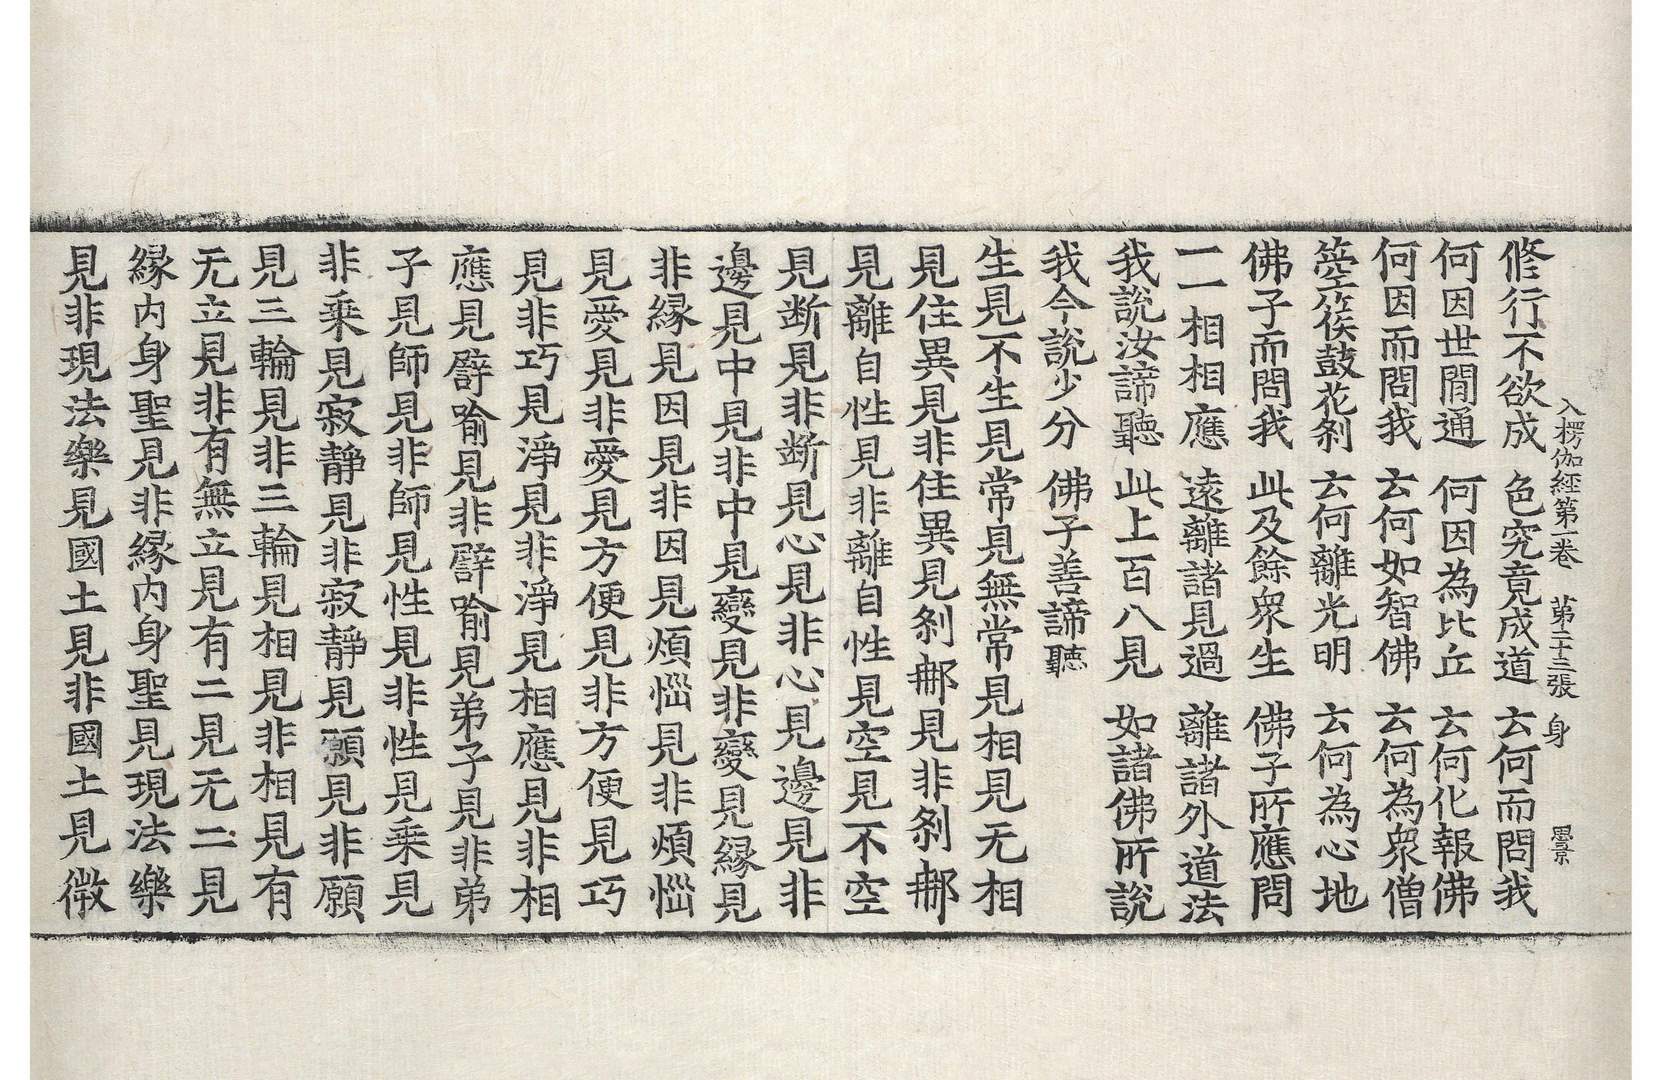 入楞伽經第一卷 第二十三張 身
修行不欲成 色究竟成道 云何而問我
何因世間通 何因為比丘 云何化報佛
何因而問我 云何如智佛 云何為衆僧
箜篌鼓花刹 云何離光明 云何為心地
佛子而問我 此及餘衆生 佛子所應問
一一相相應 遠離諸見過 離諸外道法
我說汝諦聽 此上百八見 如諸佛所說
我今說少分 佛子善諦聽
生見不生見常見無常見相見无相
見住異見非住異見刹𨚗見非刹𨚗
見離自性見非離自性見空見不空
見断見非断見心見非心見邊見非
邊見中見非中見變見非變見緣見
非緣見因見非因見煩惱見非煩惱
見愛見非愛見方便見非方便見巧
見非巧見淨見非淨見相應見非相
應見譬喻見非譬喻見弟子見非弟
子見師見非師見性見非性見乘見
非乘見寂靜見非寂靜見願見非願
見三輪見非三輪見相見非相見有
无立見非有無立見有二見无二見
緣内身聖見非緣内身聖見現法樂
見非現法樂見國土見非國土見微